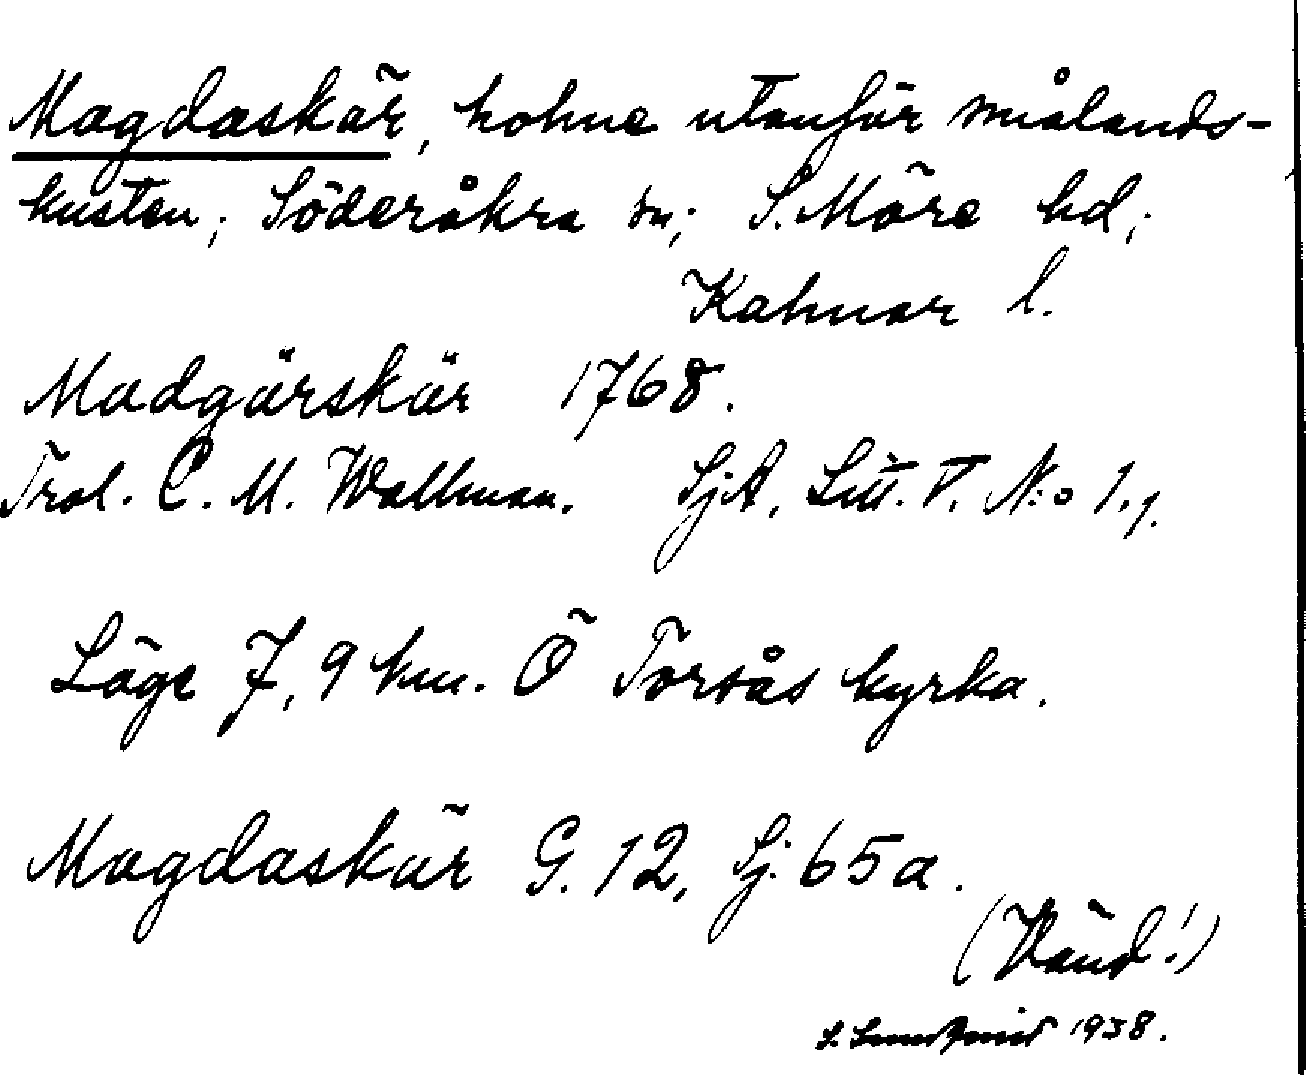 Magdaskär, holme utanför smålands-
kusten; Söderåkra sn; S. Möre hd;
Kalmar l.
Madgärskär 1768.
Trol. C. M. Wallman. SjA, Litt. V. N:o 1.
Läge 7,9 km. Ö Torsås kyrka.
Magdaskär G. 12, Sj. 65a.
(Vänd!)
S. Sundqvist 1938.